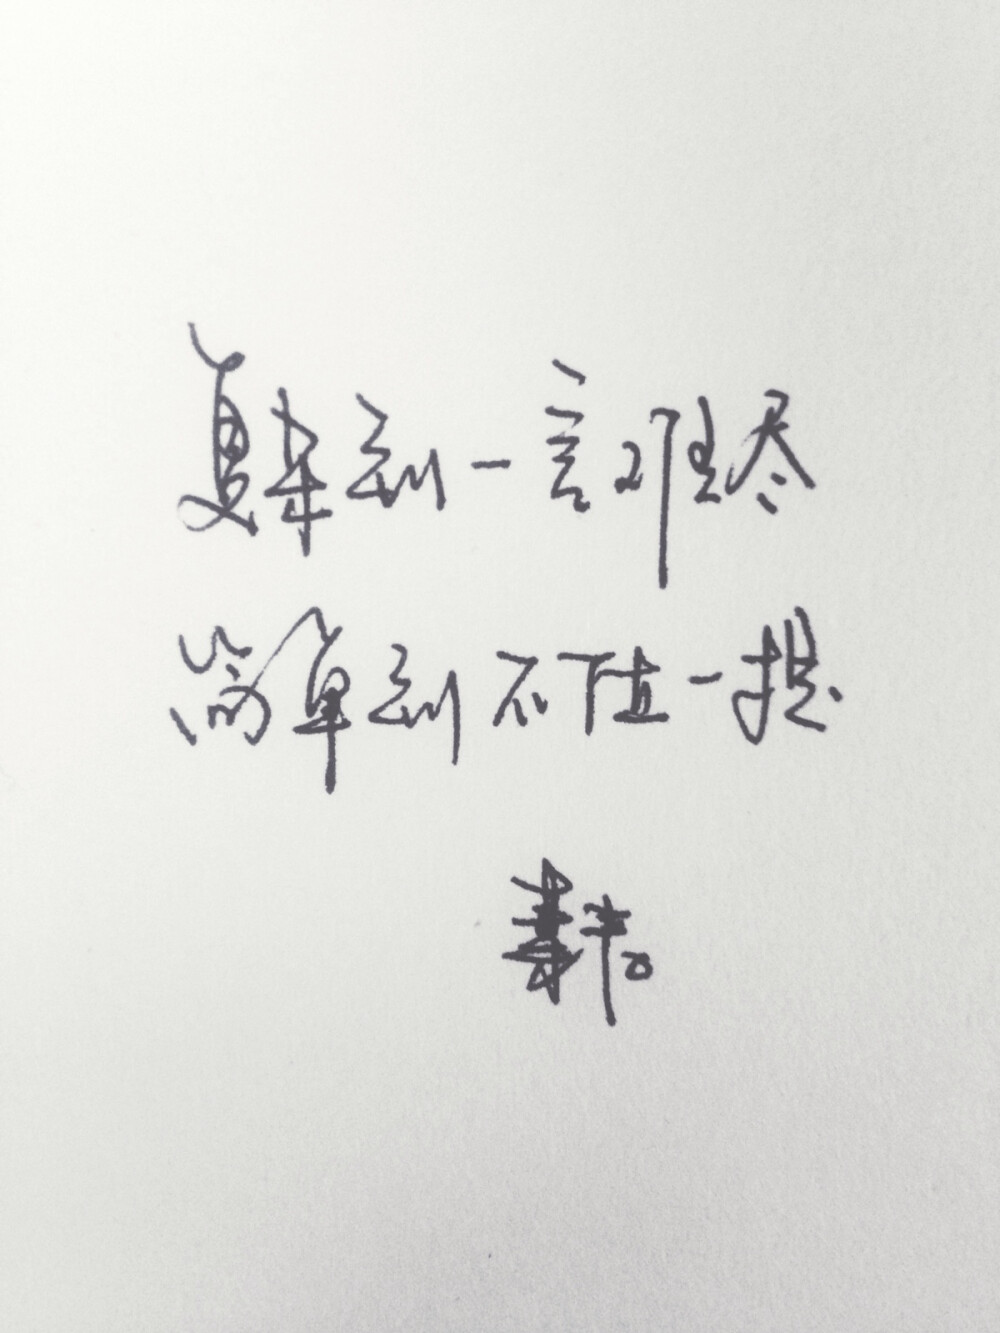 复杂到一言难尽
简单到不值一提